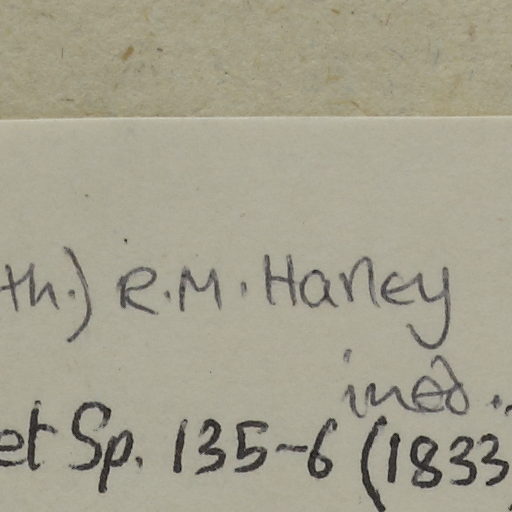 th.) R.M. Harley
ined.
et Sp. 135-6 (1833